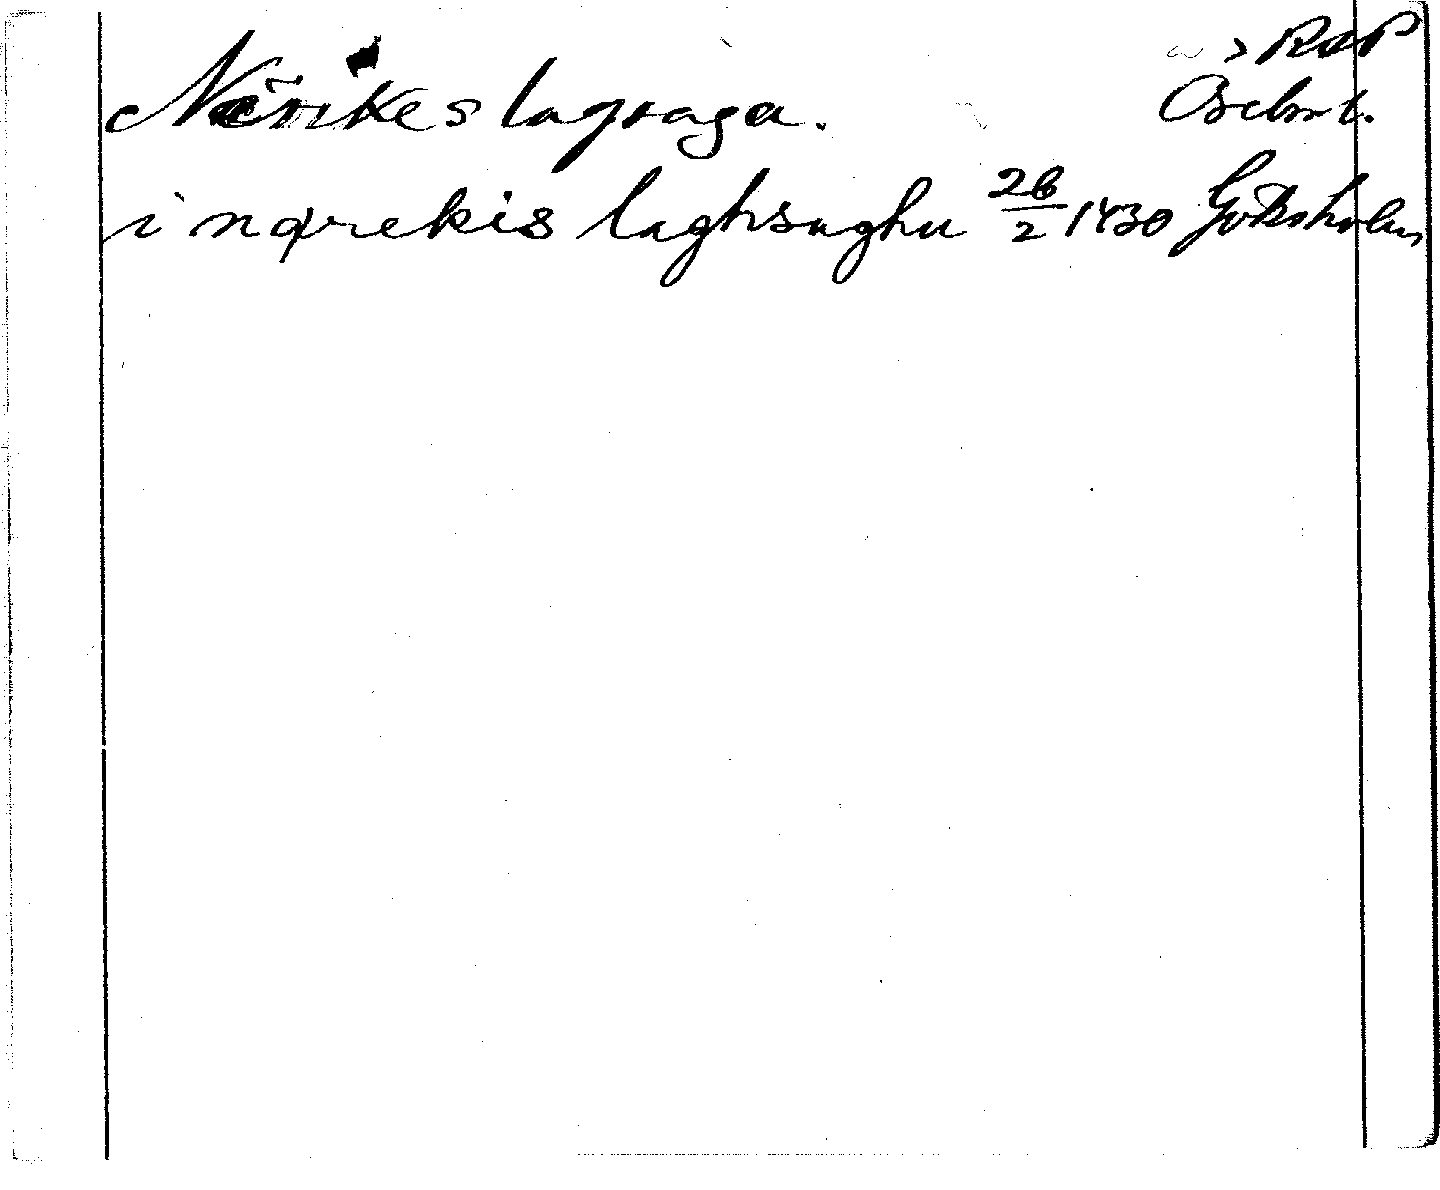 Närikes lagsaga. RAP
i nærekis laghsaghu 26/2 1430 Goksholm